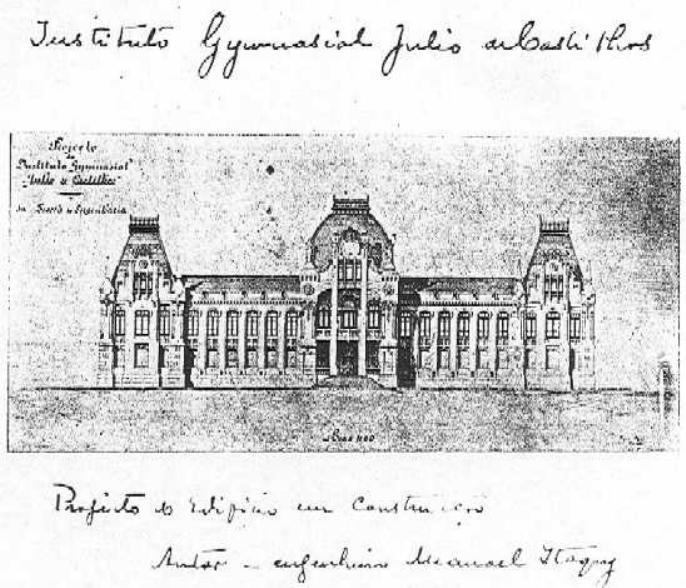 Instituto Gymnasial Julio de Castilhos
Projecto
do
Instituto Gymnasial
"Julio de Castilhos"
da Escola de Engenharia
Projecto do Edificio em Construcção
Autor - engenheiro Manoel Itaquy